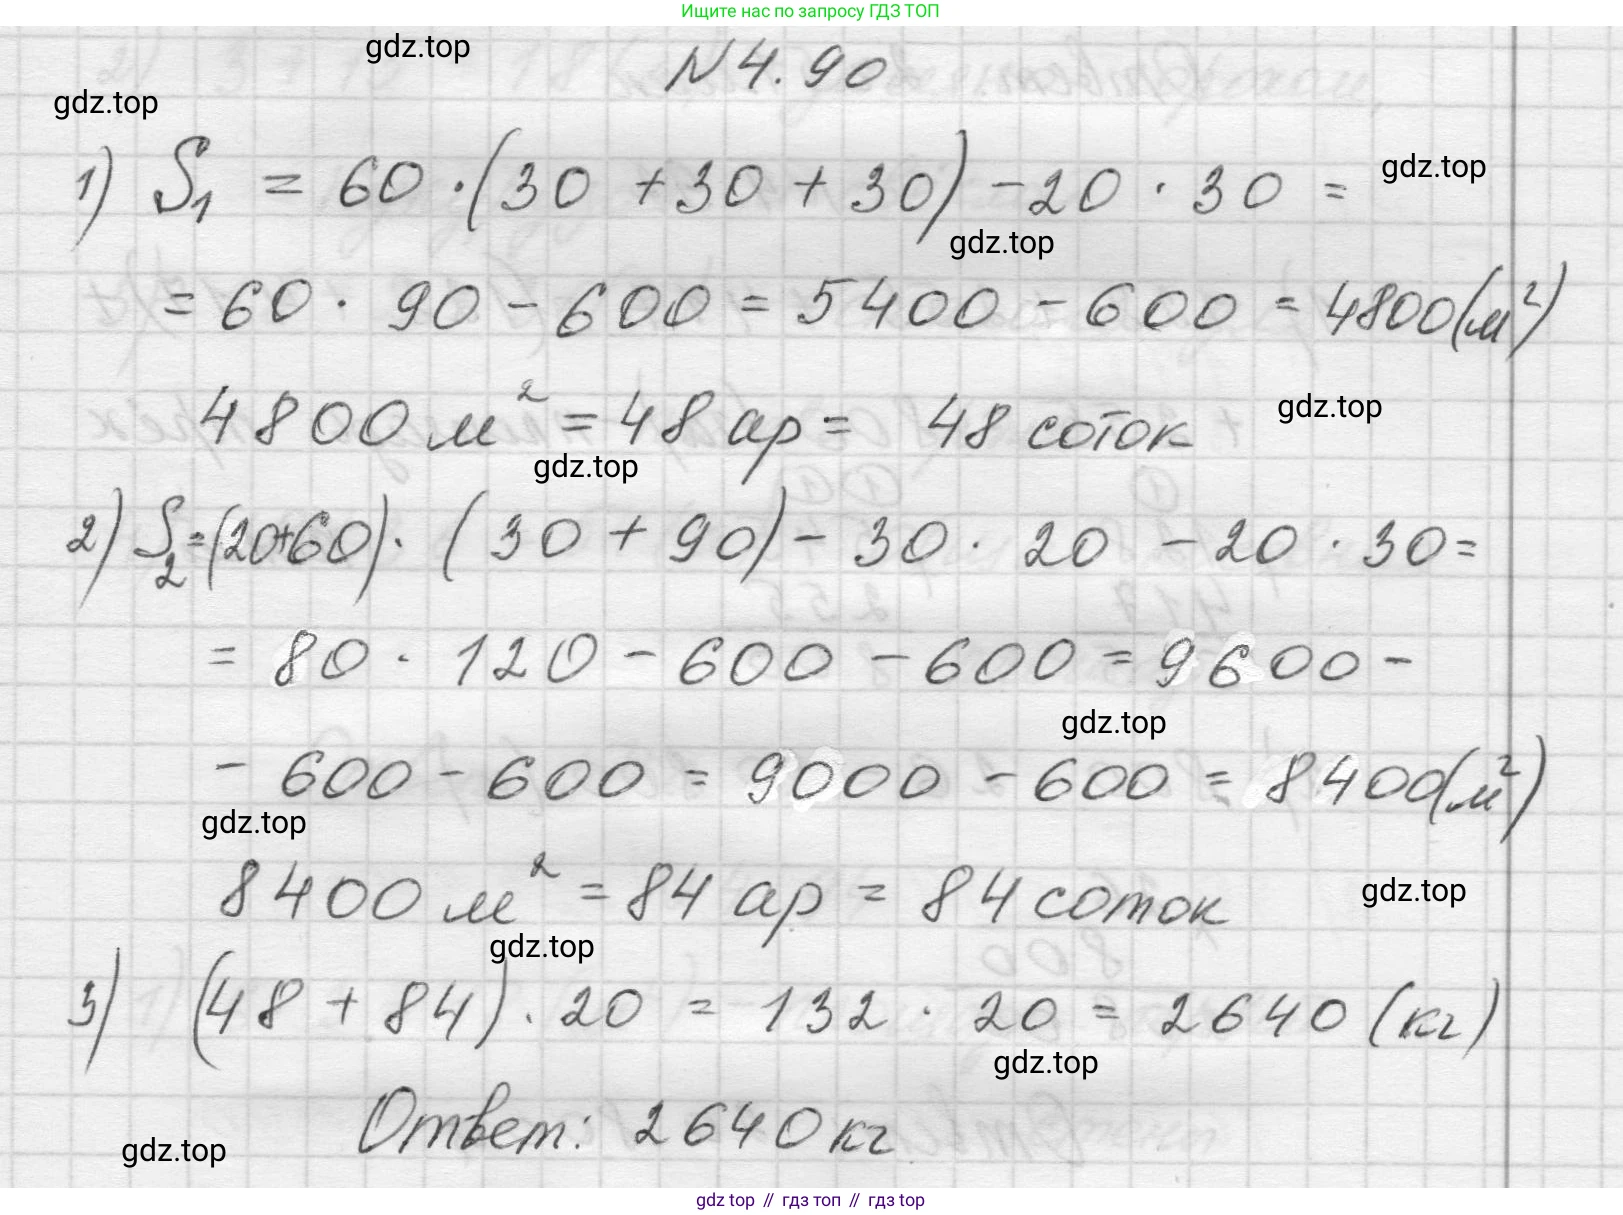 Ищите нас по запросу ГДЗ ТОП
gdz.top
N 4.90
gdz.top
1) S₁ = 60 · (30 + 30 + 30) - 20 · 30 =
gdz.top
gdz.top
= 60 · 90 - 600 = 5400 - 600 = 4800 (м²)
4800 м² = 48 ар = 48 соток
gdz.top
gdz.top
2) S₂ = (20+60) · (30 + 90) - 30 · 20 - 20 · 30 =
= 80 · 120 - 600 - 600 = 9600 -
gdz.top
- 600 - 600 = 9000 - 600 = 8400 (м²)
gdz.top
8400 м² = 84 ар = 84 соток
gdz.top
gdz.top
3) (48 + 84) · 20 = 132 · 20 = 2640 (кг)
gdz.top
Ответ: 2640 кг
gdz.top
gdz top // гдз топ // гдз top